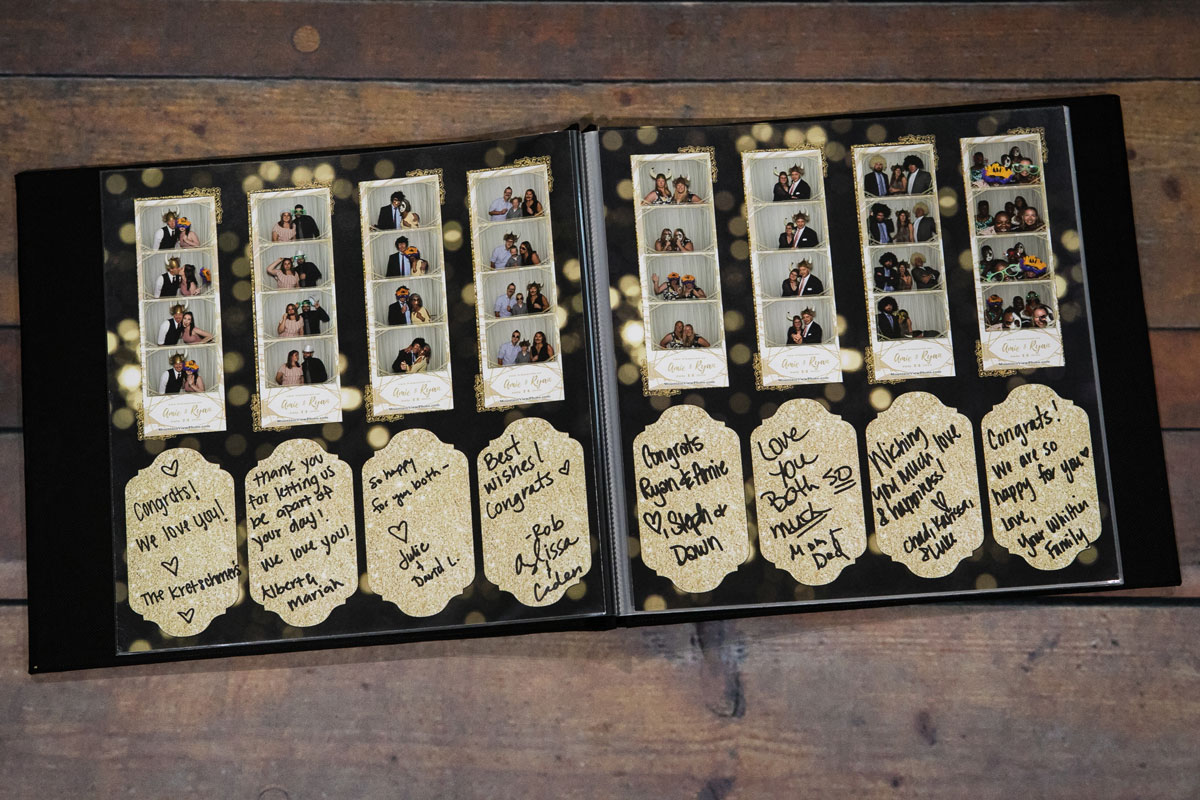 Amie & Ryan
Amie & Ryan
Amie & Ryan
Amie & Ryan
Amie & Ryan
Amie & Ryan
Amie & Ryan
Amie & Ryan
Congrats!
We love you!
The Kretschmers
thank you
for letting us
be apart of
your day!
We love you!
Albert &
Mariah
So happy
for you both-
Julie
+
David L.
Best
wishes!
Congrats
-Rob
Alissa
+
Caden
Congrats
Ryan & Amie
, Steph &
Down
Love
you
Both so
much
Mom &
Dad
Wishing
you much love
& happiness!
Chad, Karissa,
& Luke
Congrats!
We are so
happy for you
love,
your Whitten
Family